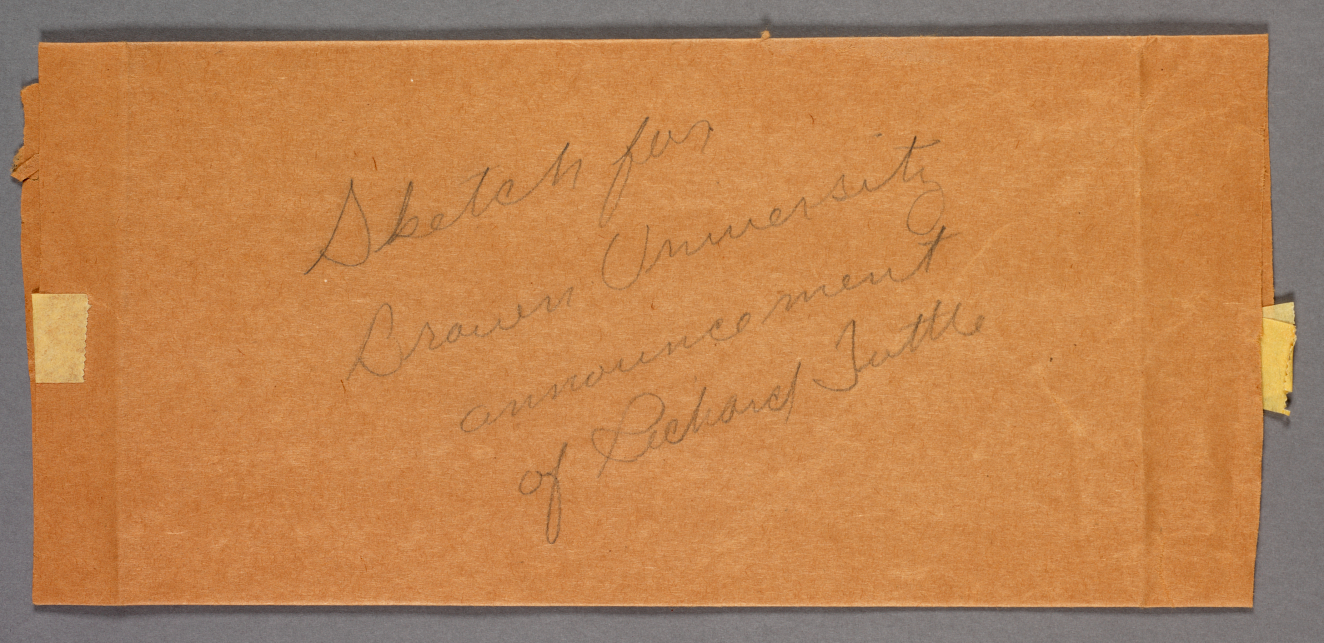 Sketch for
Brown University
announcement
of Richard Tuttle